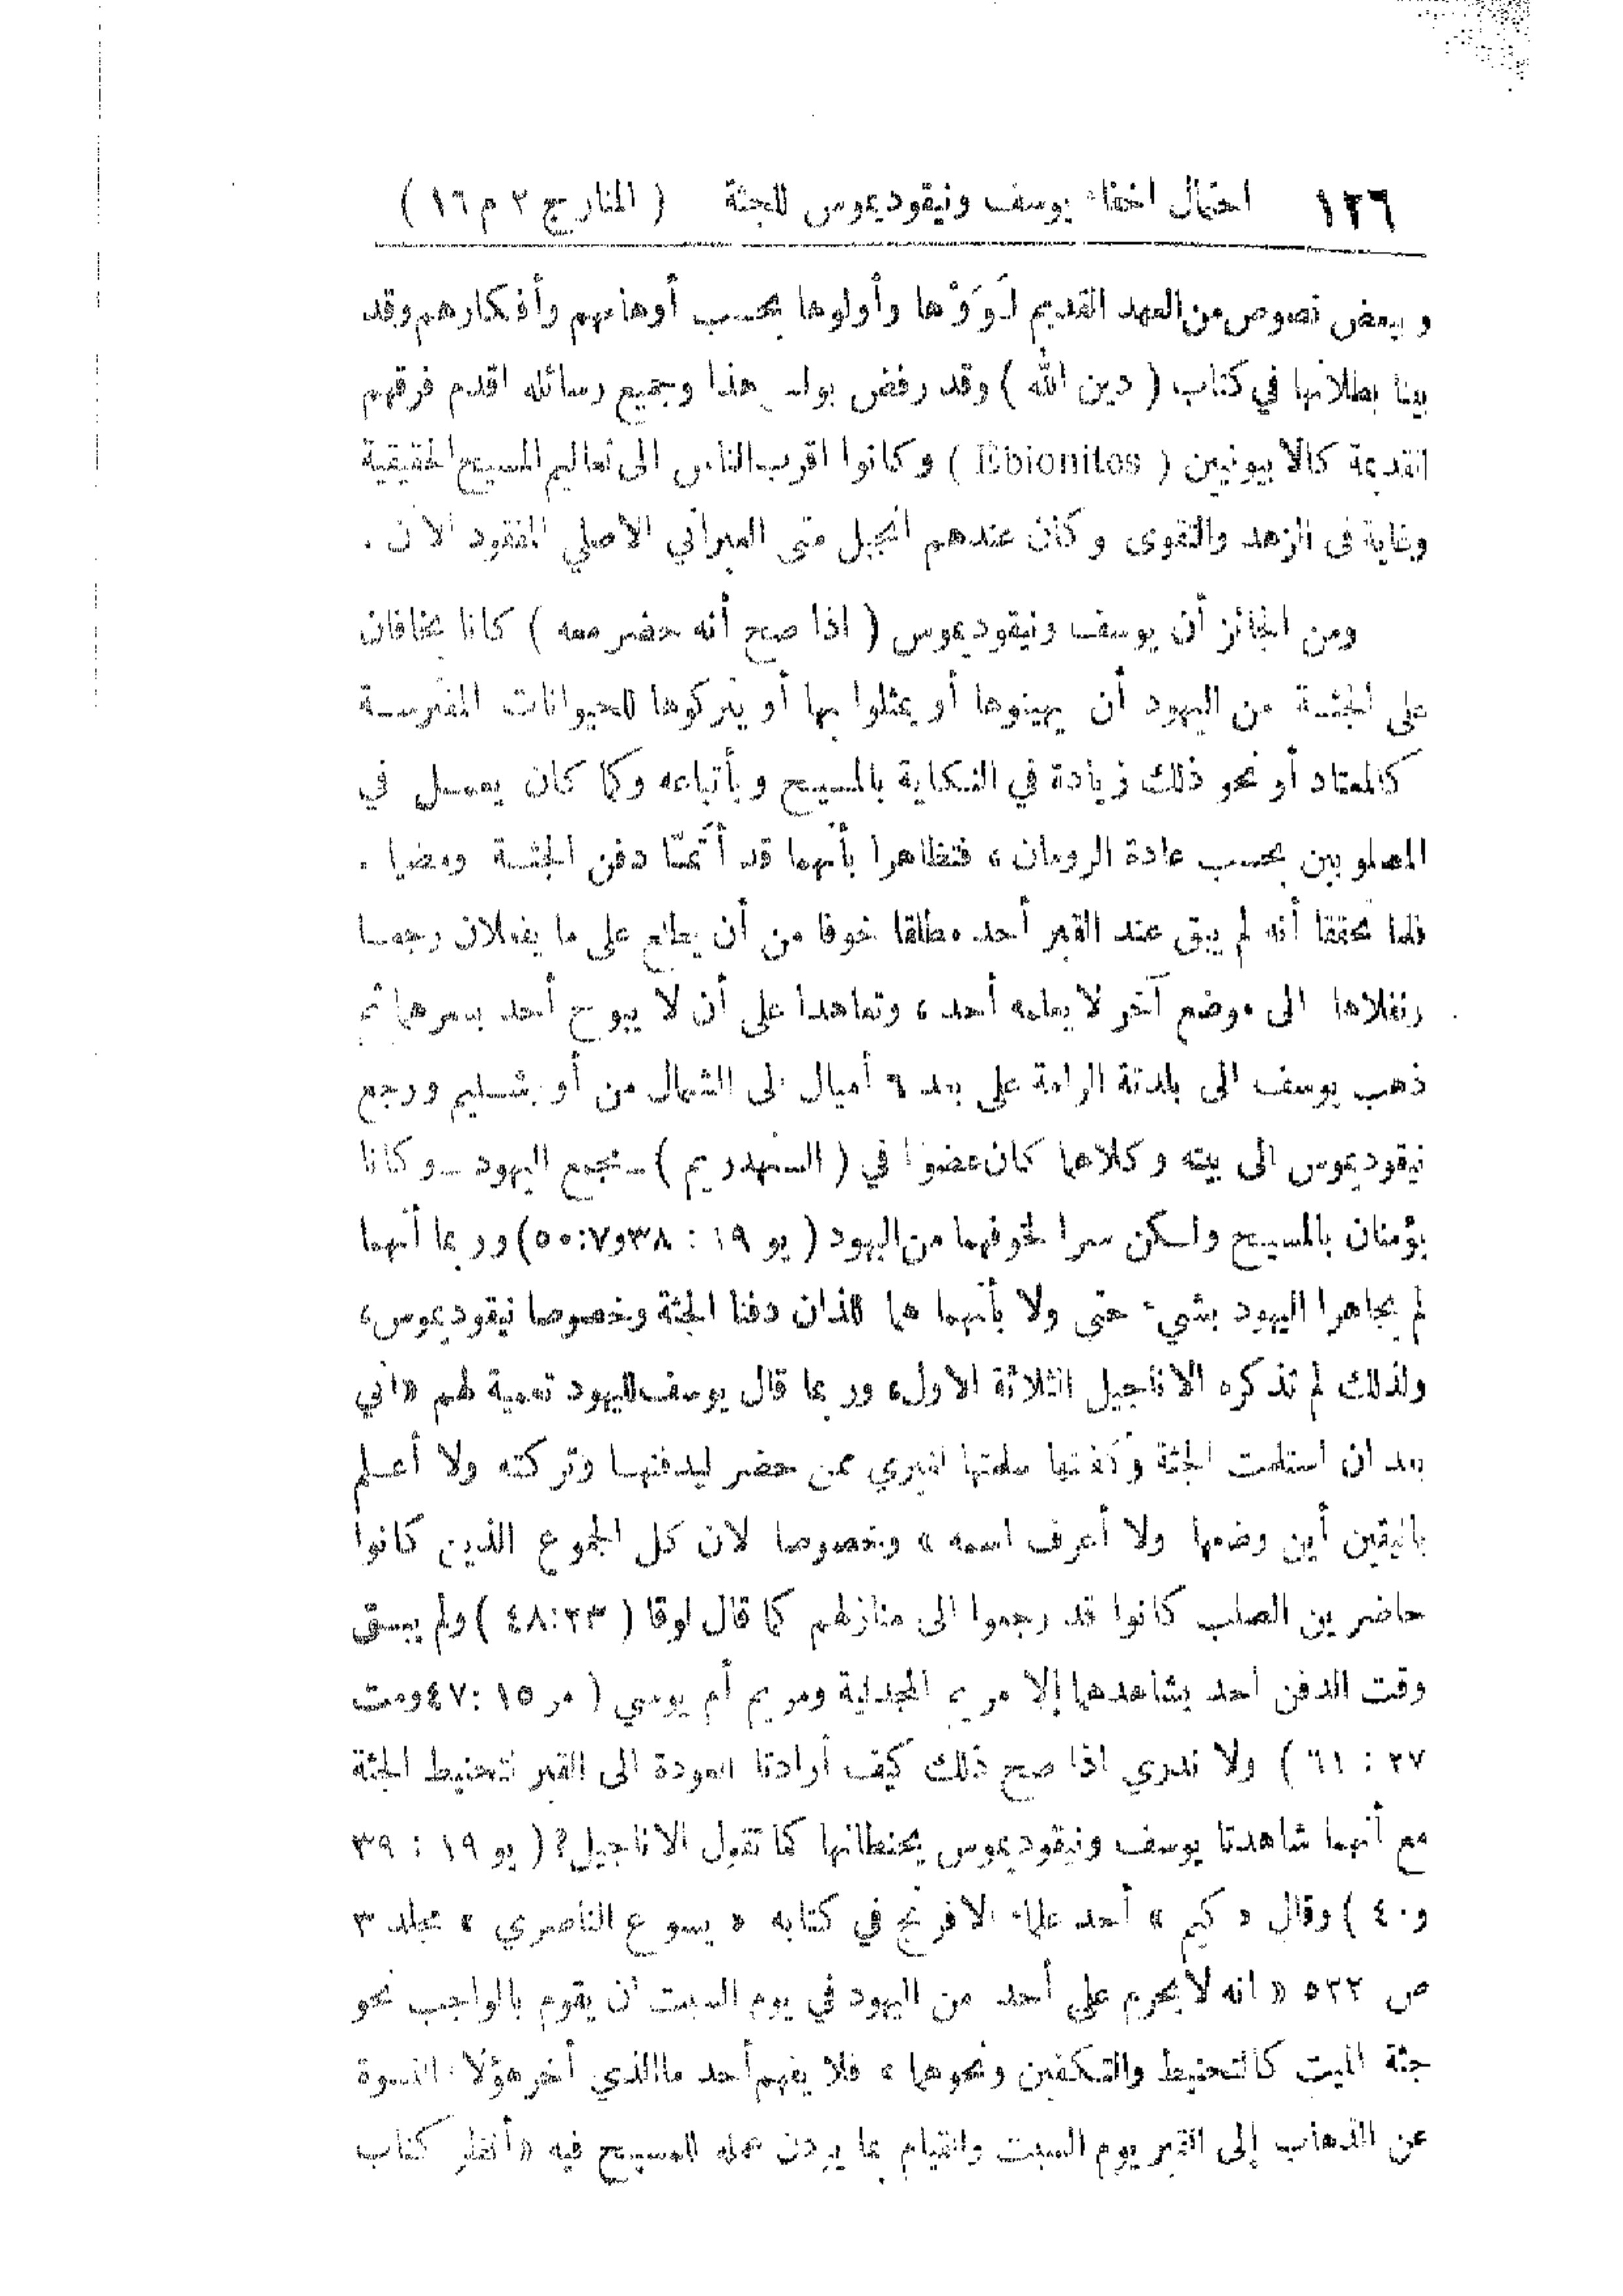 ١٢٦ احتمال اخفاء يوسف ونيقوديموس للجثة ( المنار ج ٢ م ١٦ )
و بعض نصوص من العهد القديم لَوَوْها وأولوها بحسب أوهامهم وأفكارهم وقد
بينا بطلانها في كتاب ( دين الله ) وقد رفض بولس هذا وجميع رسائله اقدم فرقهم
القديمة كالابيونيين ( Ebionites ) وكانوا اقرب الناس الى تعاليم المسيح الحقيقية
وغاية فى الزهد والتقوى وكان عندهم انجيل متى العبراني الاصلي المفقود الآن .
ومن الجائز أن يوسف ونيقوديموس ( اذا صح أنه حضر معه ) كانا يخافان
على الجثة من اليهود أن يهينوها أو يمثلوا بها أو يتركوها للحيوانات المفترسة
كالمعتاد أو نحو ذلك زيادة في النكاية بالمسيح وبأتباعه وكما كان يعمل في
المصلوبين بحسب عادة الرومان ، فتظاهرا بأنهما قد أتمّا دفن الجثة ومضيا .
فلما تحققا أنه لم يبق عند القبر أحد مطلقا خوفا من أن يطلع على ما يفعلان رجعا
ونقلاها الى موضع آخر لا يعلمه أحد ، وتعاهدا على أن لا يبوح أحد بسرهما ثم
ذهب يوسف الى بلدته الرامة على بعد ٦ أميال الى الشمال من أورشليم ورجع
نيقوديموس الى بيته وكلاهما كان عضوا في ( السنهدريم ) ــ مجمع اليهود ــ وكانا
يؤمنان بالمسيح ولكن سرا لخوفهما من اليهود ( يو ١٩ : ٣٨ و٧:٥٠) وربما أنهما
لم يجاهرا اليهود بشيء حتى ولا بأنهما هما اللذان دفنا الجثة وخصوصا نيقوديموس ،
ولذلك لم تذكره الاناجيل الثلاثة الاول ، وربما قال يوسف لليهود تعمية لهم « اني
بعد ان استلمت الجثة وكفنتها سلمتها لغيري ممن حضر ليدفنها وتركته ولا أعلم
باليقين أين وضعها ولا أعرف اسمه » وخصوصا لان كل الجموع الذين كانوا
حاضرين الصلب كانوا قد رجعوا الى منازلهم كما قال لوقا ( ٢٣:٤٨ ) ولم يبق
وقت الدفن احد يشاهدهما إلا مريم المجدلية ومريم أم يوسي ( مر ١٥ :٤٧ ومت
٢٧ : ٦١ ) ولا ندري اذا صح ذلك كيف أرادتا العودة الى القبر لتحنيط الجثة
مع أنهما شاهدتا يوسف ونيقوديموس يحنطانها كما تقول الاناجيل ? ( يو ١٩ : ٣٩
و٤٠ ) وقال « كيم » أحد علماء الافرنج في كتابه « يسوع الناصري » مجلد ٣
ص ٥٢٢ « انه لا يحرم على أحد من اليهود في يوم السبت أن يقوم بالواجب نحو
جثة الميت كالتحنيط والتكفين ونحوهما » فلا يفهم أحد ما الذي أخر هؤلاء النسوة
عن الذهاب إلى القبر يوم السبت والقيام بما يردن عمله للمسيح فيه « أنظر كتاب